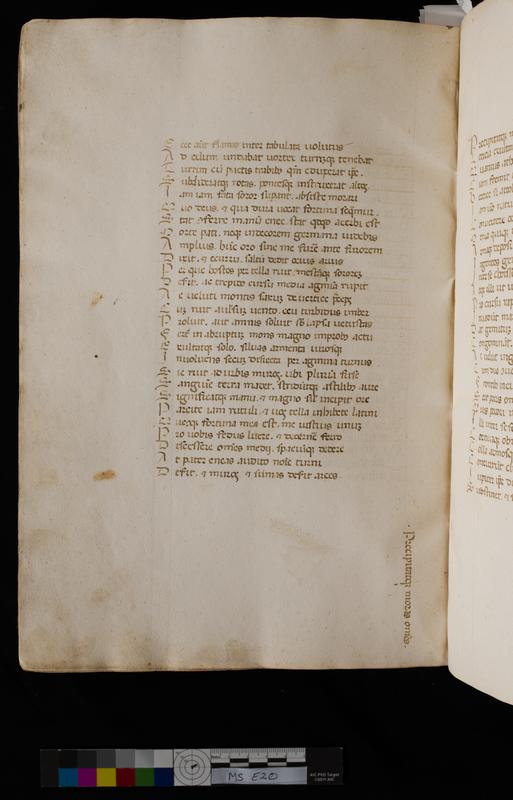 E cce aut̃ flamis inter tabulata uolutus
A d celum undabat uortex turrimqꝫ tenebat
T urrim cū pactis trabibꝰ qm̄ eduxerat ip̄e
S ubdideratqꝫ rotas. pontesqꝫ instrauerat altos
I am iam fata soror supant. absiste morari
Q uo deus. ⁊ qua dura uocat fortuna seqmur.
S tat ꝯferre manū enee. stat qcqd acerbi est
M orte pati. neqꝫ indecorem germana uidebis
A mplius. hūc oro sine me furē ante furorem
D ixit. ⁊ e curru. saltū dedit ocius aruis
P er que hostes per tella ruit mestāqꝫ sororeꝫ
D eserit. ac trepido cursu media agmia rupit
A c ueluti montis saxuꝫ de uertice p̄ceps
C uꝫ ruit auulsuꝫ uento. ceu turbidus imber
P roluit. aut annis soluit sb lapsa uetustas
F ert̃ in abruptuꝫ mons magno improbꝰ actu
E xultatqꝫ solo. siluas armenta uirosqꝫ
I nuoluens secuꝫ disiecta per agmina turnus
S ic ruit ad urbis muros. ubi plurīa fuso
S anguine terra madet. stridūtqꝫ astilibꝰ aure
S ignificatqꝫ manu. ⁊ magno siłˀ incipit ore
P arcite iam rutuli ⁊ uos tella inhibete latini
Q ueqꝫ fortuna mea est. me uerius unuꝫ
P ro uobis fedus luere. ⁊ decernē ferro
D iscessere omēs medij. spaciūqꝫ dedere
A t pater eneas audito noīe turni
D eserit. ⁊ muros ⁊ sūmas deserit arces.
Precipitatqꝫ moras omēs.
MS E20